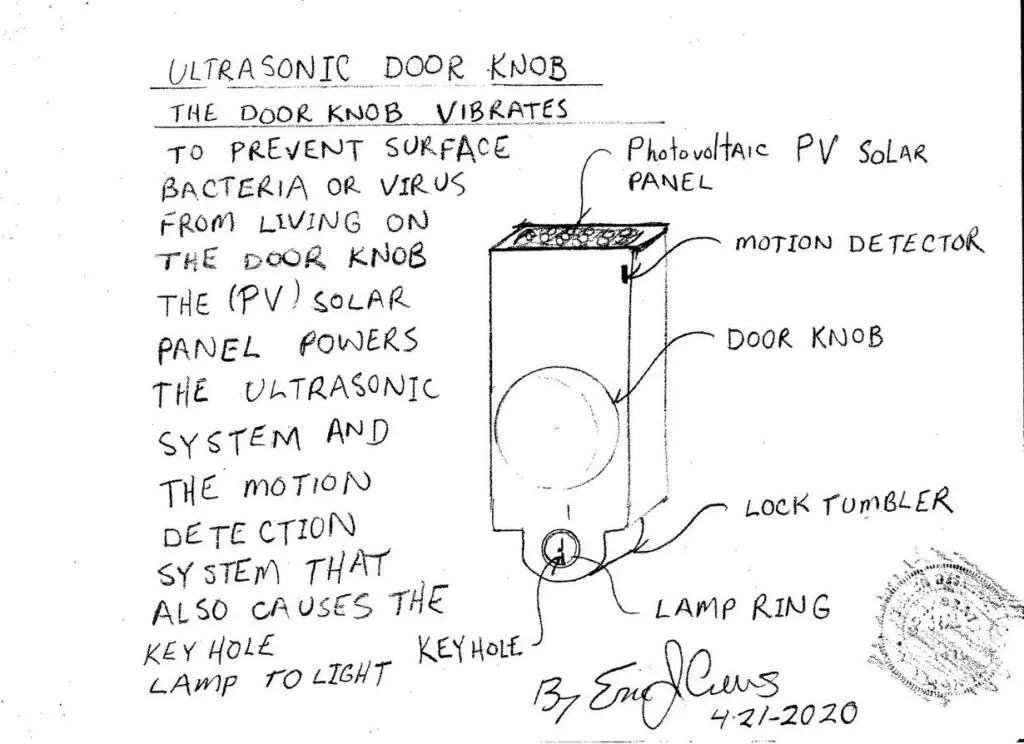 ULTRASONIC DOOR KNOB
THE DOOR KNOB VIBRATES
TO PREVENT SURFACE
BACTERIA OR VIRUS
FROM LIVING ON
THE DOOR KNOB
THE (PV) SOLAR
PANEL POWERS
THE ULTRASONIC
SYSTEM AND
THE MOTION
DETECTION
SYSTEM THAT
ALSO CAUSES THE
KEY HOLE
LAMP TO LIGHT
PhotovoltAIC PV SOLAR
PANEL
MOTION DETECTOR
DOOR KNOB
LOCK TUMBLER
LAMP RING
KEYHOLE
By Eric J Crews
4-21-2020